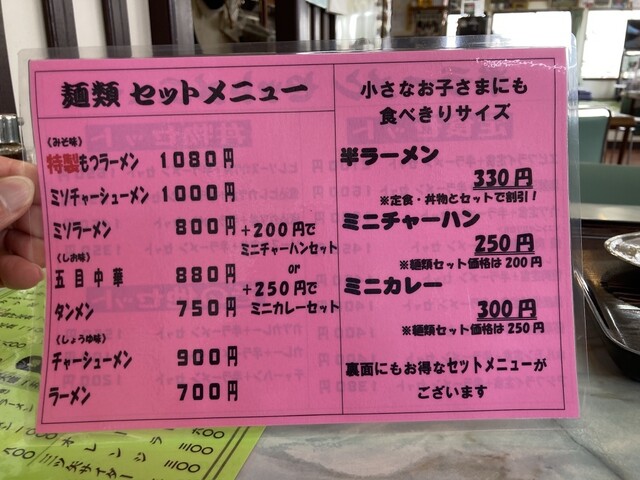 麺類 セットメニュー
(みそ味)
特製もつラーメン 1080円
ミソチャーシューメン 1000円
ミソラーメン 800円
(しお味)
五目中華 880円
タンメン 750円
(しょうゆ味)
チャーシューメン 900円
ラーメン 700円
+200円で
ミニチャーハンセット
or
+250円で
ミニカレーセット
小さなお子さまにも
食べきりサイズ
半ラーメン
330円
※定食・丼物とセットで割引!
ミニチャーハン
250円
※麺類セット価格は200円
ミニカレー
300円
※麺類セット価格は250円
裏面にもお得なセットメニューが
ございます
オレンジ
300
三ツ矢サイダー